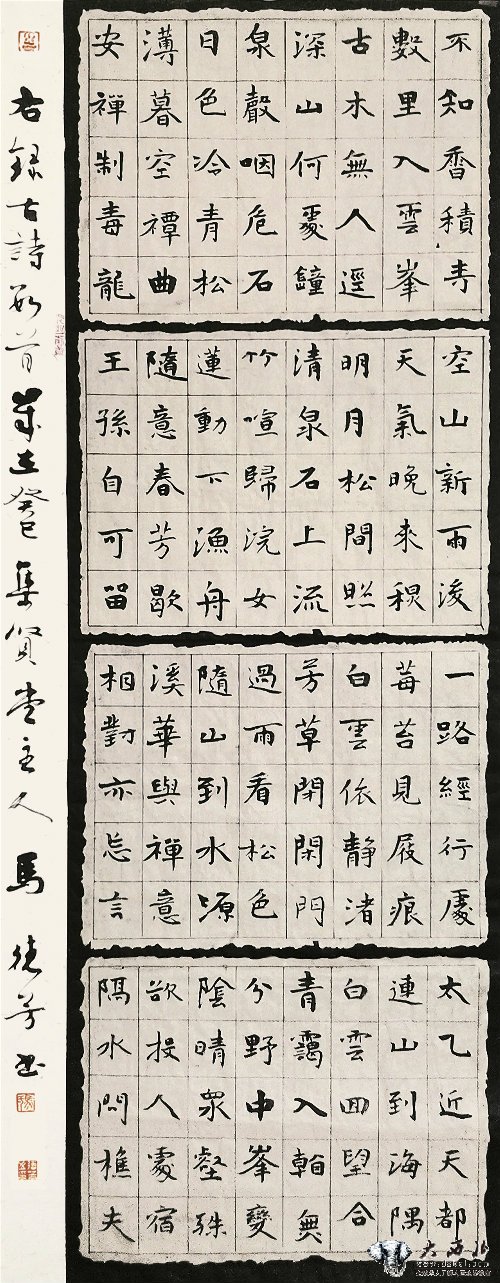 不知香積寺
數里入雲峯
古木無人逕
深山何處鐘
泉聲咽危石
日色冷青松
薄暮空潭曲
安禪制毒龍
空山新雨後
天氣晚來秋
明月松間照
清泉石上流
竹喧歸浣女
蓮動下漁舟
隨意春芳歇
王孫自可留
一路經行處
莓苔見屐痕
白雲依静渚
芳草閉閑門
過雨看松色
隨山到水源
溪華與禪意
相對亦忘言
太乙近天都
連山到海隅
白雲回望合
青靄入看無
分野中峯變
陰晴眾壑殊
欲投人處宿
隔水問樵夫
右録古詩數首歲在癸巳集賢堂主人馬德芳書
大西北